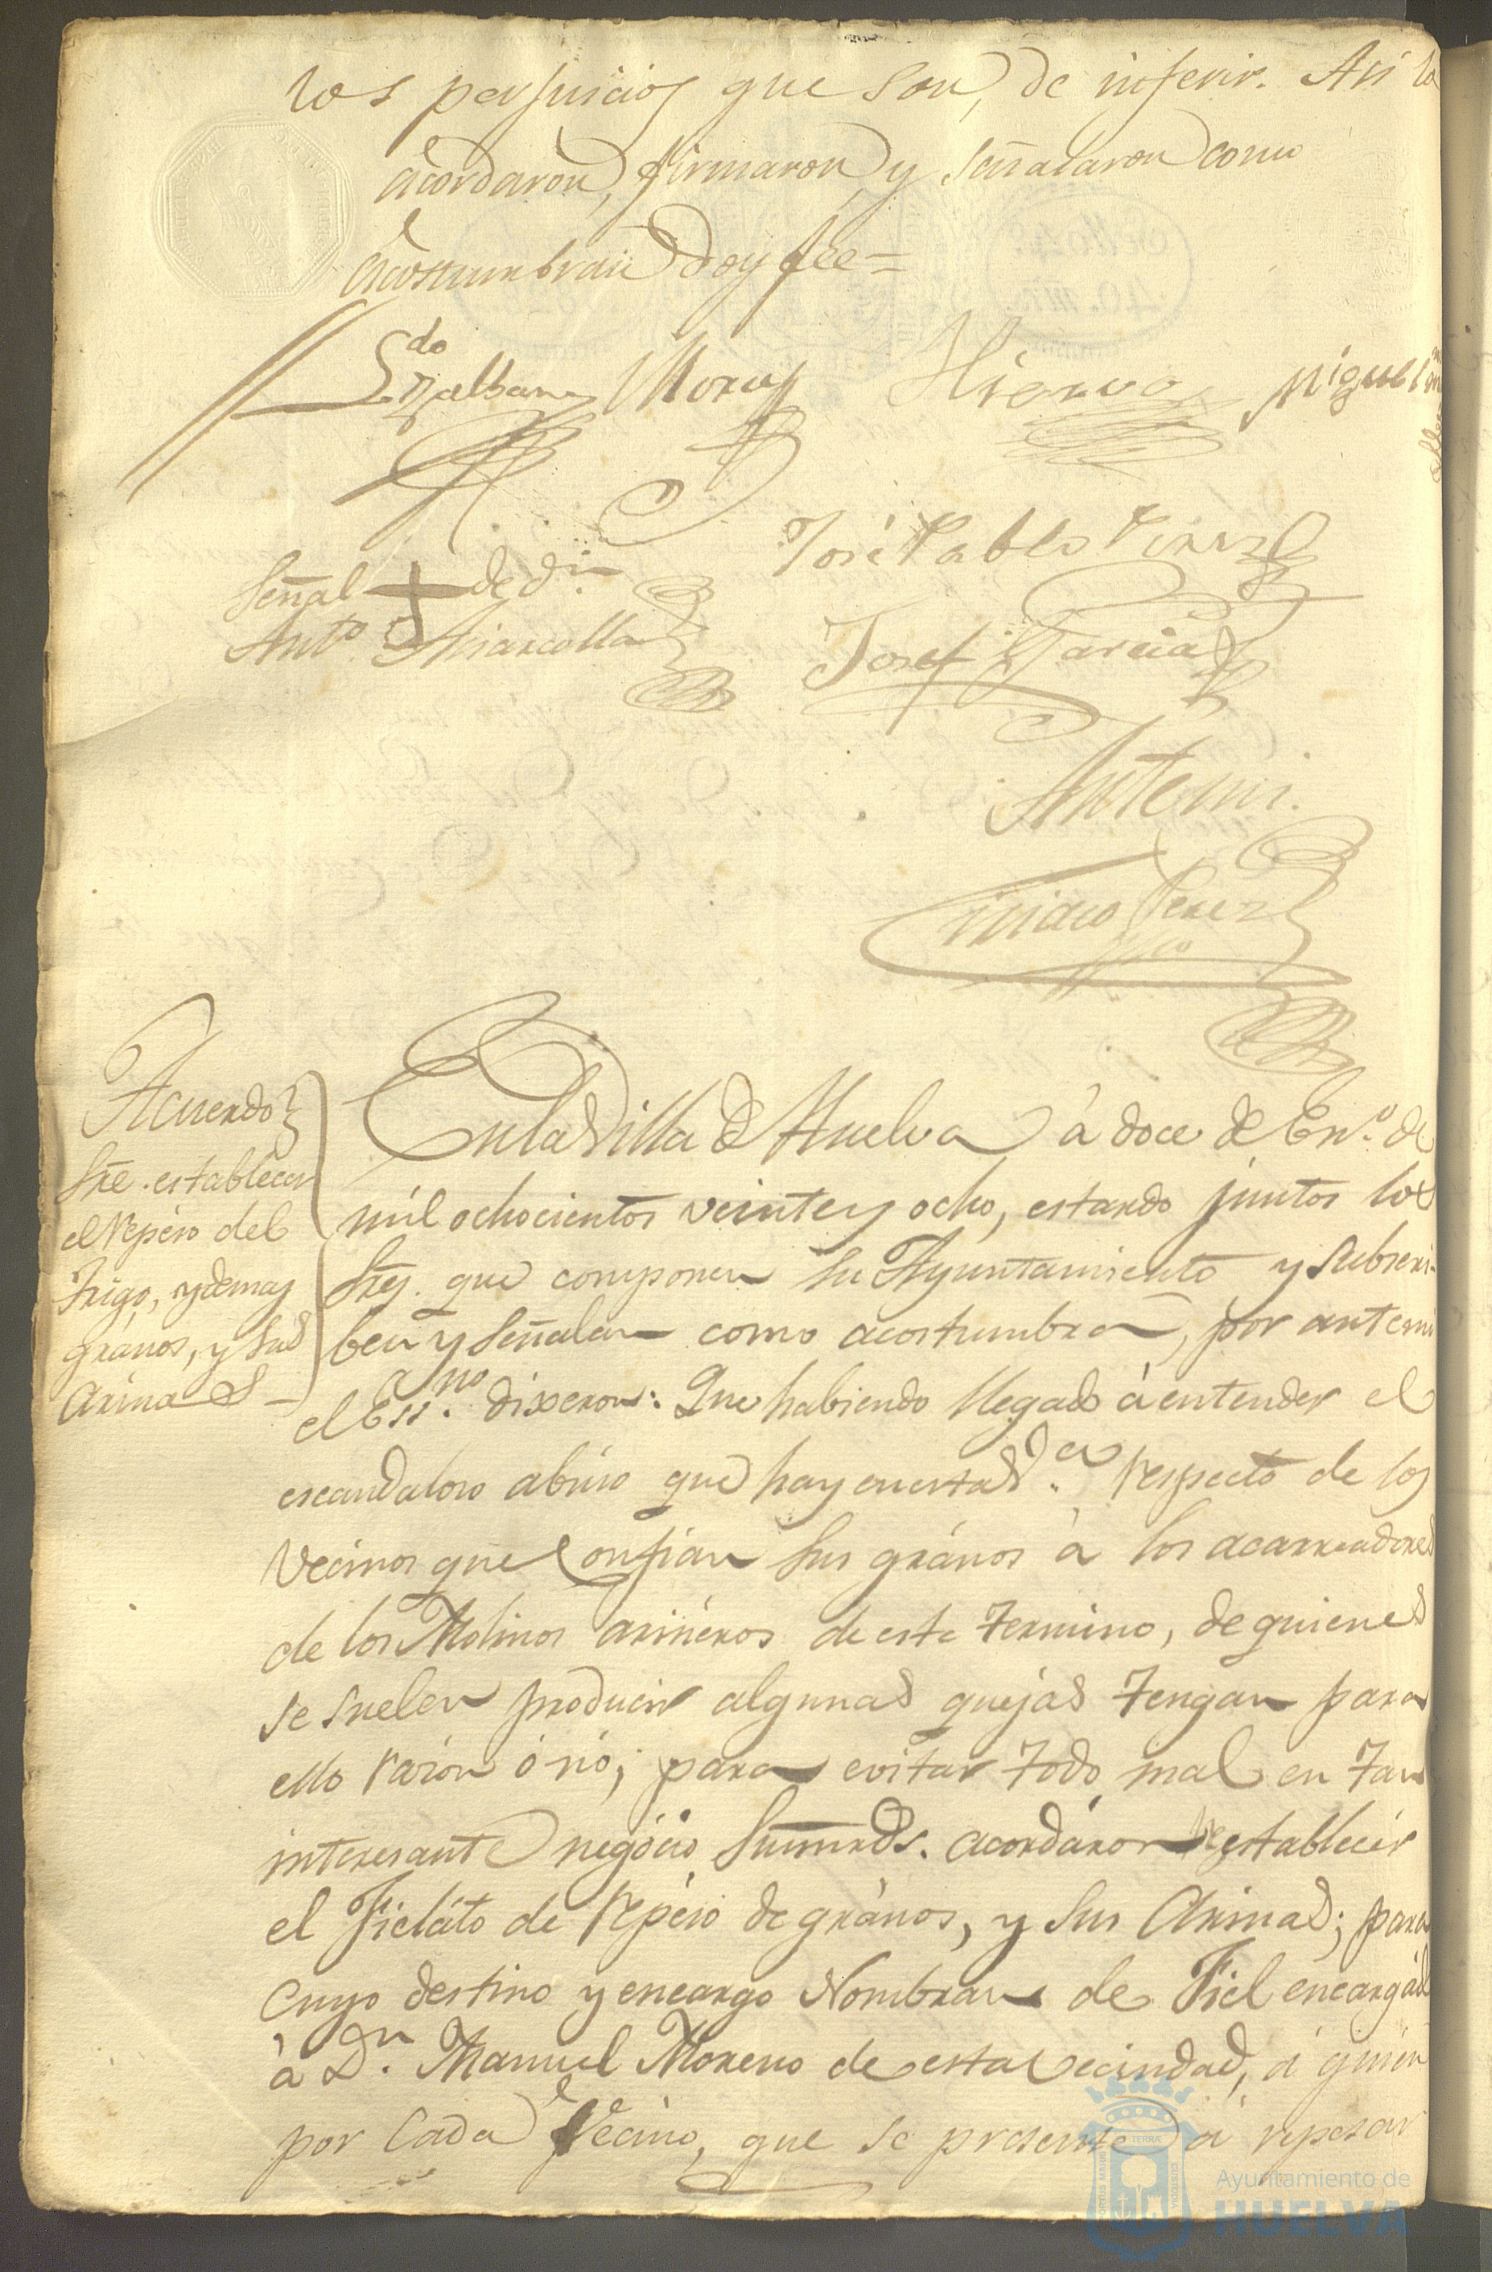 los perjuicios que son de inferir. Asi lo
acordaron, firmaron y señalaron como
acostumbran doy fee=
Ldo
Hierro
Miguel
José Pablo Perez
Señal + de Dn
Anto
Josef Garcia
Antemi.
Perez
Acuerdo
Sre. establecer
el repeso del
Trigo, y demas
granos, y sus
Arinas
En la Villa de Huelva à doce de Eno. de
mil ochocientos veinte y ocho, estando juntos los
Sres. que componen su Ayuntamiento y subscri-
ben y señalan como acostumbran, por antemi
el Essno. dixeron: Que habiendo llegado à entender el
escandaloso abuso que hay en esta Va. respecto de los
Vecinos que confian sus grános à los acarreadores
de los Molinos arinéros de este termino, de quienes
se suelen producir algunas quejas tengan para
ello razón ó nó; para evitar todo mal en tan
interesante negócio Sus mrds. acordáron restablecér
el Fieláto de repéso de grános, y sus Arinas; para
cuyo destino y encargo Nombran de Fiel encargádo
à Dn. Manuel Moreno de esta Vecindad, á quien
por cada Vecino, que se presente á repesar
Ayuntamiento de
HUELVA